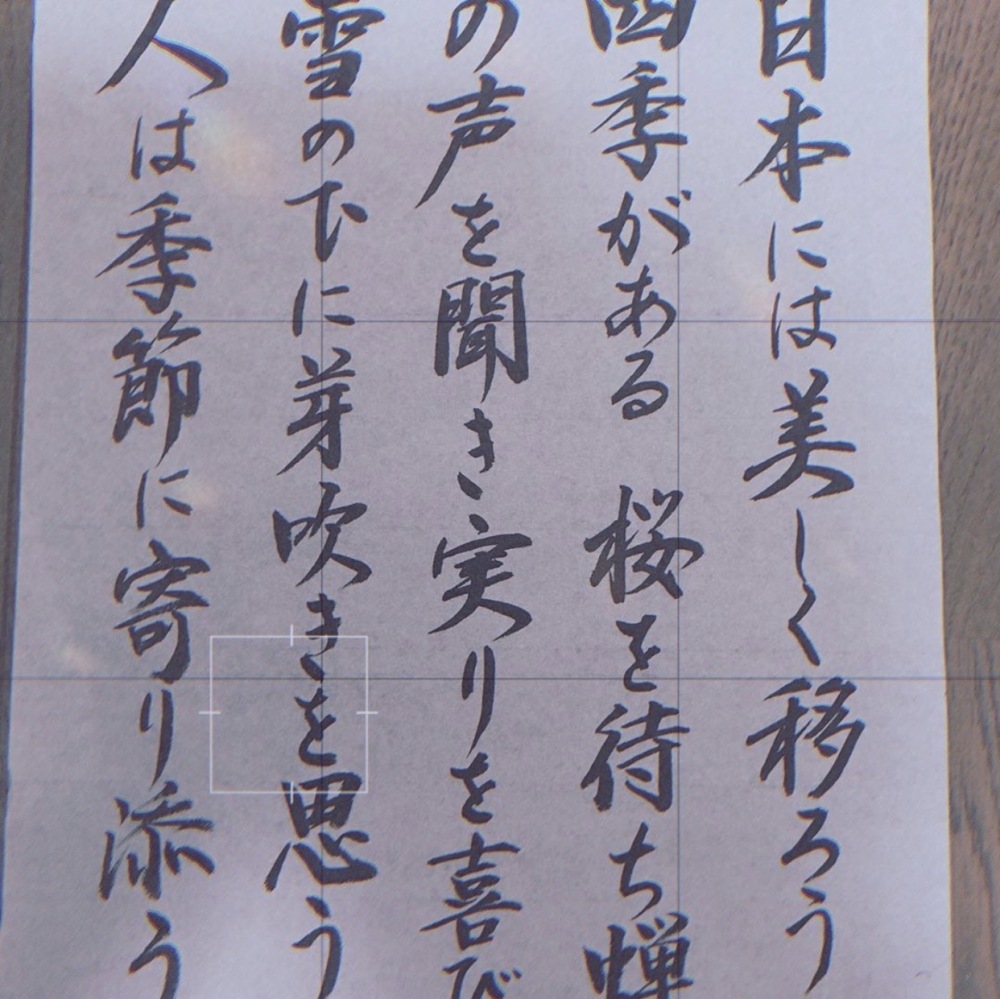 日本には美しく移ろう
四季がある 桜を待ち蝉
の声を聞き実りを喜び
雪の下に芽吹きを思う
人は季節に寄り添う